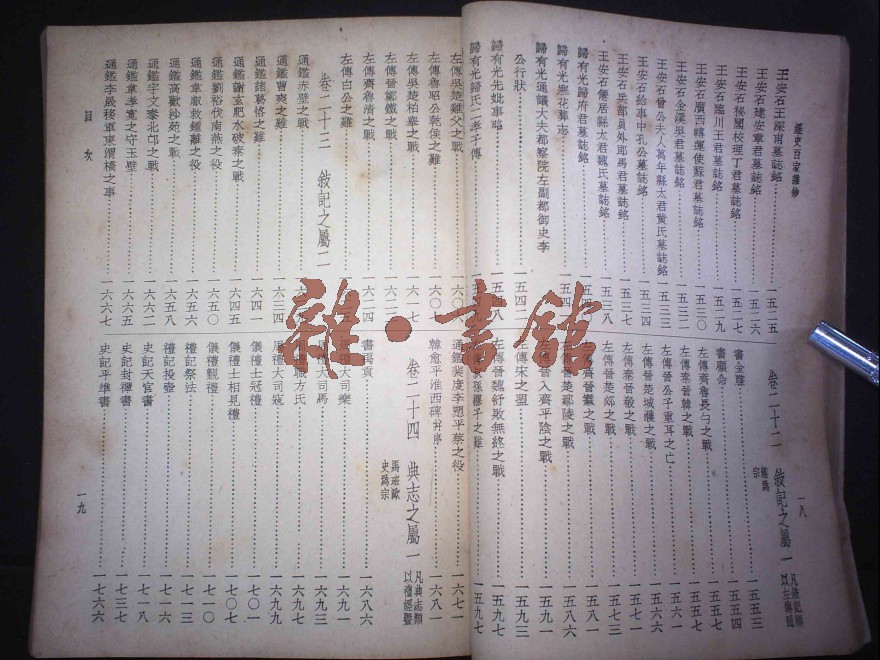 經史百家雜鈔
一八
王安石王深甫墓誌銘……一五二五
王安石建安章君墓誌銘……一五二六
王安石祕閣校理丁君墓誌銘……一五二七
王安石臨川王君墓誌銘……一五二九
王安石廣西轉運使蘇君墓誌銘……一五三〇
王安石金谿吳君墓誌銘……一五三二
王安石曾公夫人萬年縣太君黃氏墓誌銘……一五三三
王安石給事中孔公墓誌銘……一五三四
王安石兵部員外郎馬君墓誌銘……一五三七
王安石僊居縣太君魏氏墓誌銘……一五三八
歸有光歸府君墓誌銘
歸有光寒花葬志……一五四
歸有光通議大夫都察院左副都御史李
公行狀……一五四二
歸有光先妣事略……一五四八
歸有光歸氏二孝子傳
卷二十二 敍記之屬一
書金縢……一五五三
書顧命……一五五四
左傳齊魯長勺之戰……一五五五
左傳秦晉韓之戰……一五五六
左傳晉公子重耳之亡……一五六一
左傳晉楚城濮之戰……一五六六
左傳秦晉殽之戰……一五七三
左傳晉楚邲之戰……一五七五
左傳齊晉鞌之戰……一五八一
左傳晉楚鄢陵之戰……一五八六
左傳晉入齊平陰之戰
左傳宋之盟……一五九三
左傳晉魏舒敗無終之戰……一五九七
左傳吳楚雞父之戰
左傳魯昭公乾侯之難……六〇七
左傳吳楚柏舉之戰……六一七
左傳晉鄭鐵之戰
左傳齊魯清之戰……六二四
左傳白公之難
卷二十三 敍記之屬二
通鑑赤壁之戰
通鑑曹爽之難……六三四
通鑑諸葛恪之難……一六四一
通鑑謝玄肥水破秦之戰……一六四五
通鑑劉裕伐南燕之役……一六五〇
通鑑韋叡救鍾離之役……一六五六
通鑑高歡沙苑之戰……一六五八
通鑑宇文泰北邙之戰……一六六二
通鑑韋孝寬之守玉壁……一六六五
通鑑李晟移軍東渭橋之事……一六六七
通鑑裴度李愬平蔡之役……一六七一
韓愈平淮西碑並序……一六八一
卷二十四 典志之屬一
書禹貢……一六八六
大司樂……一六九一
大司馬……一六九三
職方氏……一六九七
大司寇……一六九九
儀禮士冠禮……一七〇一
儀禮士相見禮……一七〇七
儀禮覲禮……一七一〇
禮記祭法……一七一三
禮記投壺……一七一六
史記天官書……一七一八
史記封禪書……一七三七
史記平準書……一七六六
目次
一九
雜·書館